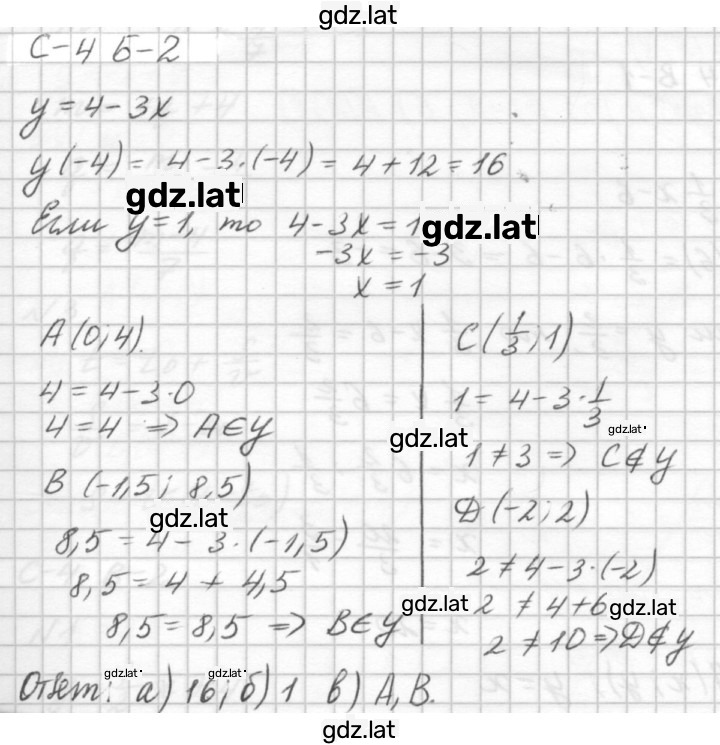 gdz.lat
С-4 Б-2
y = 4 - 3x
y(-4) = 4 - 3·(-4) = 4 + 12 = 16
gdz.lat
Если y = 1, то 4 - 3x = 1
gdz.lat
-3x = -3
x = 1
A(0; 4).
4 = 4 - 3·0
4 = 4 => A∈y
B (-1,5; 8,5)
gdz.lat
8,5 = 4 - 3·(-1,5)
8,5 = 4 + 4,5
8,5 = 8,5 => B∈y
C(1/3; 1)
1 = 4 - 3·1/3
gdz.lat
gdz.lat
1 ≠ 3 => C∉y
D(-2; 2)
2 ≠ 4 - 3·(-2)
gdz.lat
2 ≠ 4 + 6
gdz.lat
2 ≠ 10 => D∉y
gdz.lat
gdz.lat
Ответ: а) 16; б) 1 в) A, B.
gdz.lat